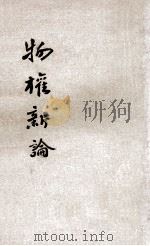 物權新論
研狗
mtoou.info